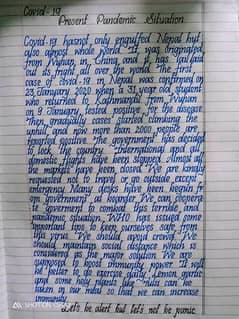 Covid-19
Present Pandemic Situation
Covid-19 has not only engulfed Nepal but
also almost whole world. It was originated
from Wuhan, in China, and it has laid
out its fright all over the world. The first
case of covid-19 in Nepal was confirmed on
23 January 2020 when a 31 year old student
who returned to Kathmandu from Wuhan
on 9 January tested positive for the disease
Then gradually cases started climbing the
uphill and now more than 2000 people are
reported positive. The government has decided
to lock the country. International and all
domestic flights have been stopped. Almost all
the markets have been closed. We are kindly
requested not to travel or go outside except
emergency. Many desks have been begin from
government at boarder. We can cooperate
government to combat this terrible and
pandemic situation. WHO has issued some
important tips to keep ourselves safe from
this virus. We should avoid crowd. We
should maintain social distance which is
considered as the major solution. We are
supposed to boost immunity power. It will
be better to do exercise daily. Lemon, garlic
and some holy plants like tulsi can be
taken in our meal so that we can increase
immunity.
Let's be alert but let's not be panic.
SHOT ON